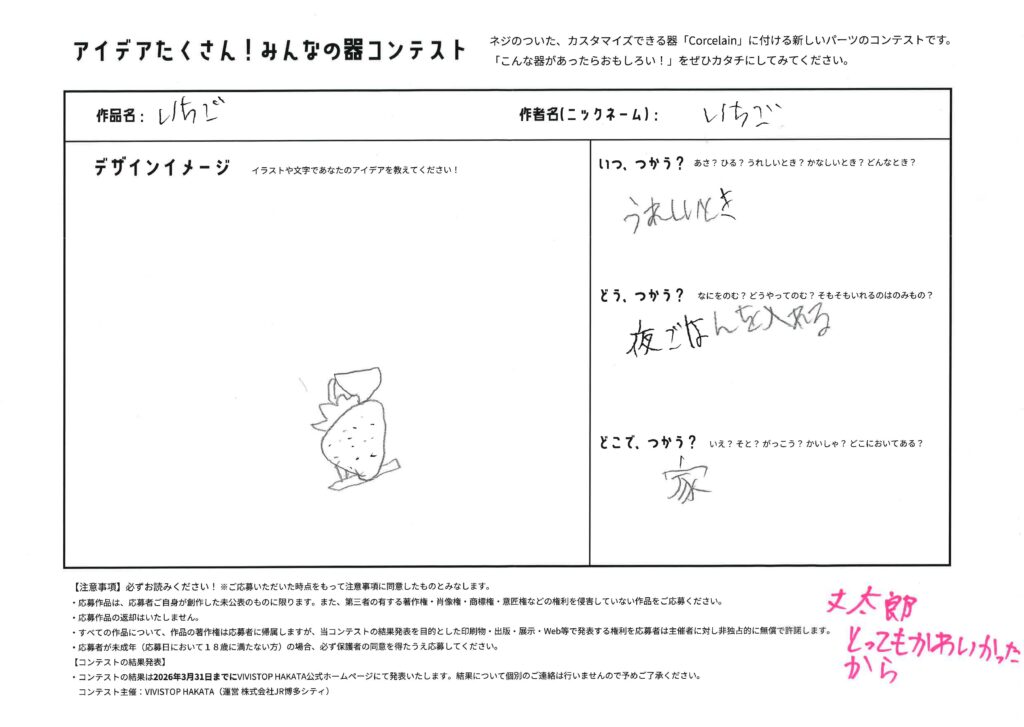 アイデアたくさん！みんなの器コンテスト
ネジのついた、カスタマイズできる器「Corcelain」に付ける新しいパーツのコンテストです。
「こんな器があったらおもしろい！」をぜひカタチにしてみてください。
作品名： いちご
作者名(ニックネーム)： いちご
デザインイメージ イラストや文字であなたのアイデアを教えてください！
いつ、つかう？ あさ？ ひる？ うれしいとき？ かなしいとき？ どんなとき？
うれしいとき
どう、つかう？ なにをのむ？ どうやってのむ？ そもそもいれるのはのみもの？
夜ごはんを入れる
どこで、つかう？ いえ？ そと？ がっこう？ かいしゃ？ どこにおいてある？
家
【注意事項】必ずお読みください！ ※ご応募いただいた時点をもって注意事項に同意したものとみなします。
・応募作品は、応募者ご自身が創作した未公表のものに限ります。また、第三者の有する著作権・肖像権・商標権・意匠権などの権利を侵害していない作品をご応募ください。
・応募作品の返却はいたしません。
・すべての作品について、作品の著作権は応募者に帰属しますが、当コンテストの結果発表を目的とした印刷物・出版・展示・Web等で発表する権利を応募者は主催者に対し非独占的に無償で許諾します。
・応募者が未成年（応募日において１８歳に満たない方）の場合、必ず保護者の同意を得たうえ応募してください。
【コンテストの結果発表】
・コンテストの結果は2026年3月31日までにVIVISTOP HAKATA公式ホームページにて発表いたします。結果について個別のご連絡は行いませんので予めご了承ください。
コンテスト主催：VIVISTOP HAKATA（運営 株式会社JR博多シティ）
丈太郎
とってもかわいかった
から